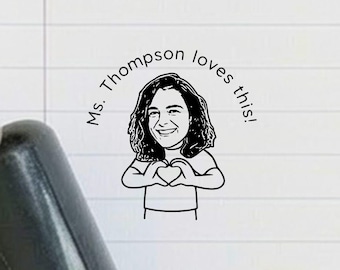 Ms. Thompson loves this!